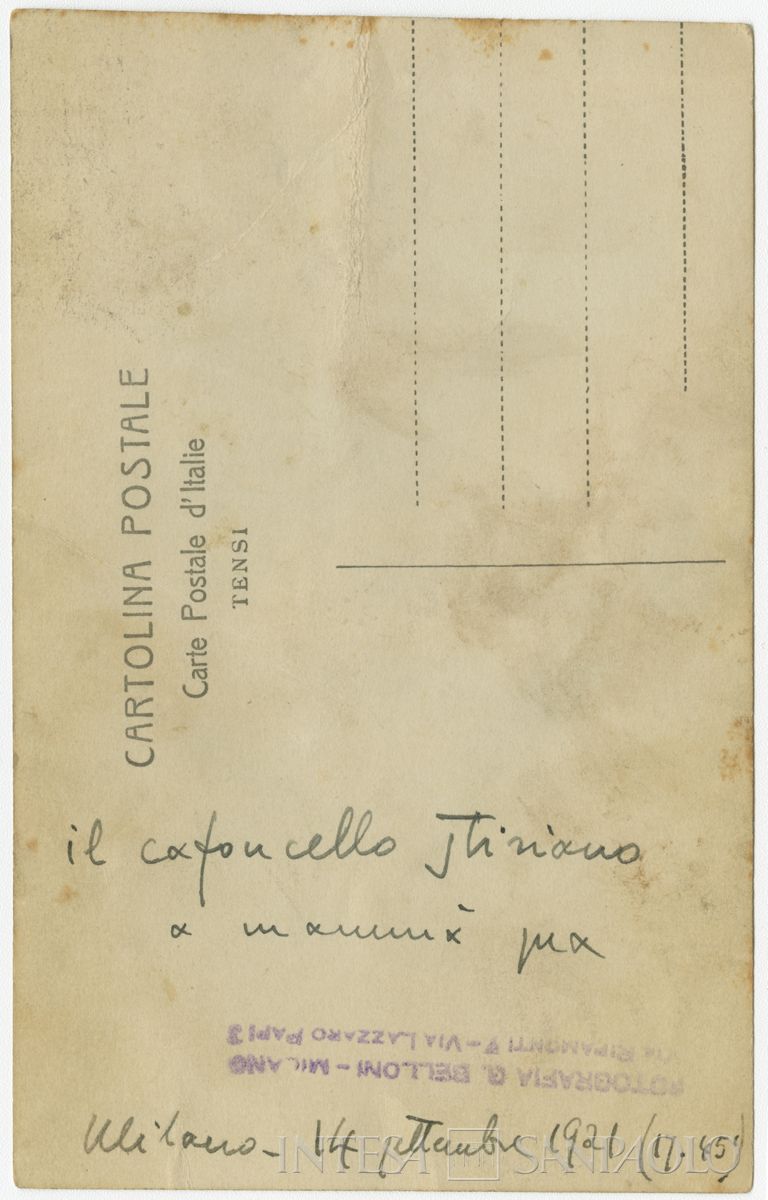 CARTOLINA POSTALE
Carte Postale d'Italie
TENSI
il cafoncello
a mammà sua
FOTOGRAFIA G. BELLONI - MILANO
VIA RIPAMONTI - VIA LAZZARO PAPI 3
Milano - 14 settembre 1921 (17.45)
INTESA SANPAOLO